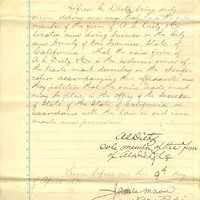 Alfred E. Dietz being duly
sworn deposes and says that he is the sole
member of the firm of A. E. Dietz & Co.
located and doing business in the City
and County of San Francisco, State of
California. That the said firm of
A. E. Dietz & Co is the exclusive owner of
the trade mark described in the
accompanying this affidavit and
they petition that the said trade mark
may be filed in the office of the Secretary
of State of the State of California in
accordance with the law in such cases
made and provided.
A E Dietz
Sole member of the firm
of A E Dietz & Co
Sworn before me this 9th
day of
James Mason